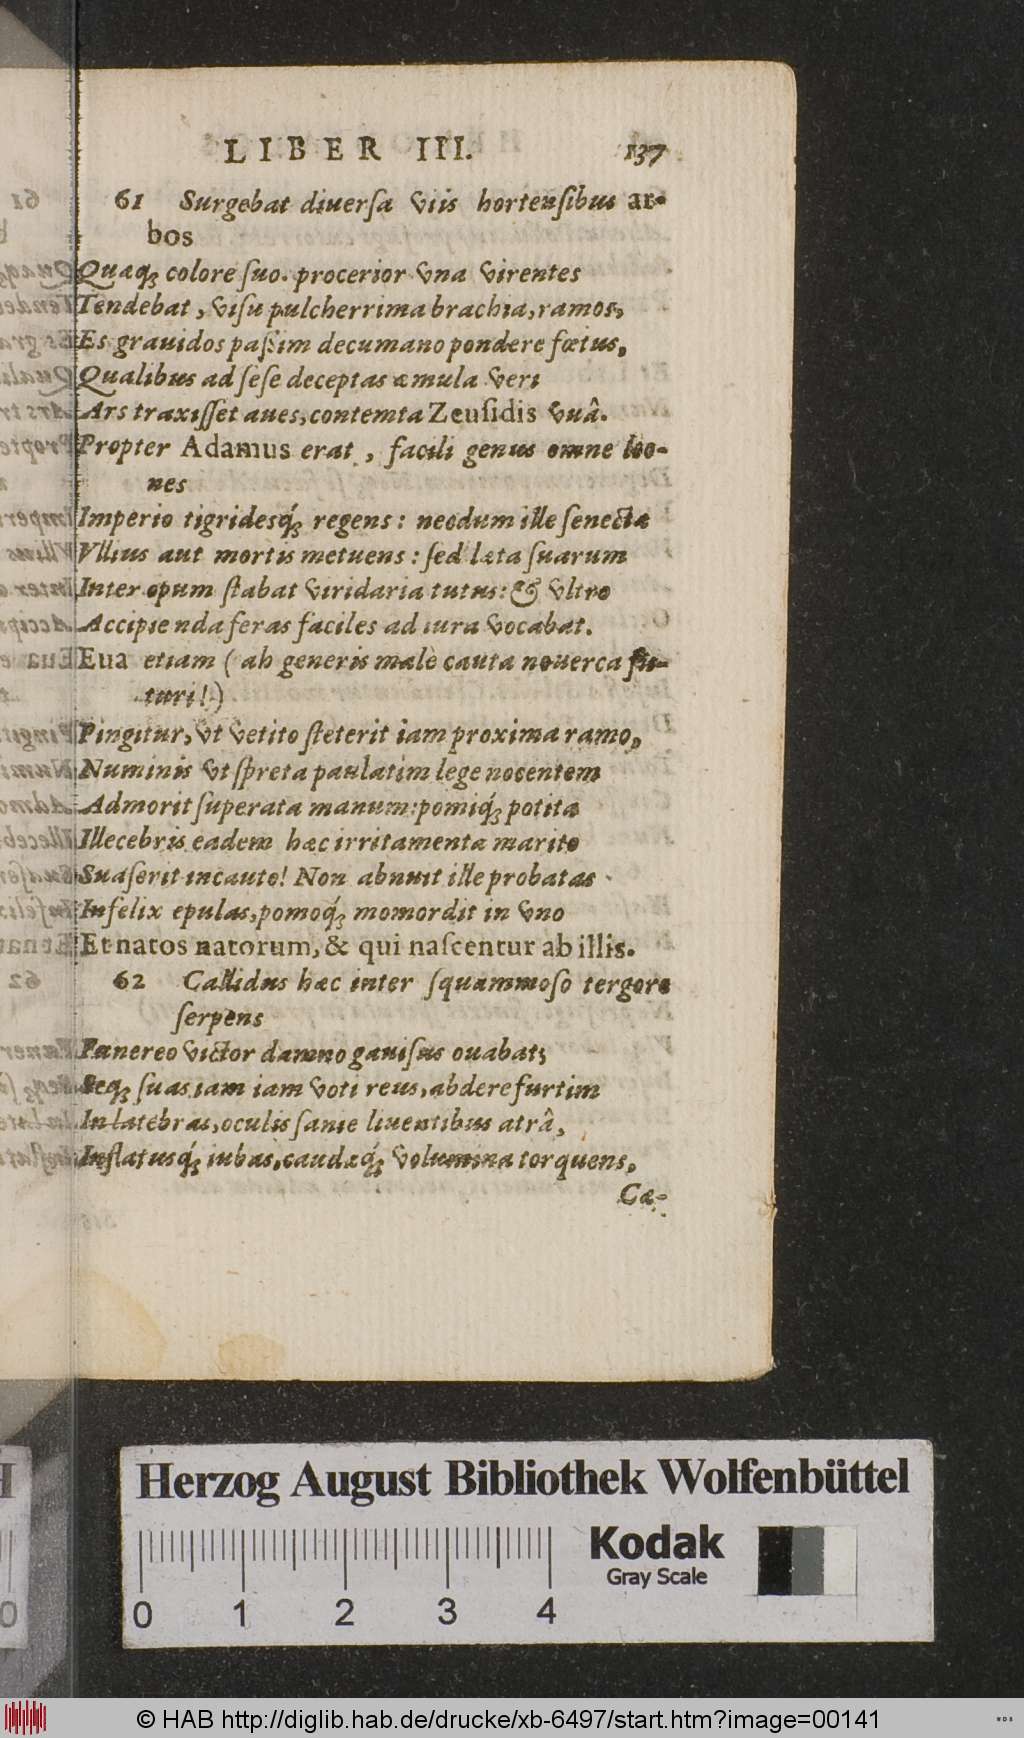 LIBER III. 137
61 Surgebat diuerſa viis hortenſibus ar-
bos
Quæqꝫ colore ſuo. procerior vna virentes
Tendebat, viſu pulcherrima brachia, ramos,
Es grauidos paſſim decumano pondere fœtus,
Qualibus ad ſeſe deceptas æmula veri
Ars traxiſſet aues, contemta Zeuſidis vuâ.
Propter Adamus erat, facili genus omne leo-
nes
Imperio tigridesqꝫ́ regens: necdum ille ſenectæ
Vllius aut mortis metuens: ſed læta ſuarum
Inter opum ſtabat viridaria tutus: & vltro
Accipienda feras faciles ad iura vocabat.
Eua etiam (ah generis malè cauta nouerca fu-
turi!)
Pingitur, vt vetito ſteterit iam proxima ramo,
Numinis vt ſpreta paulatim lege nocentem
Admorit ſuperata manum: pomiqꝫ́ potita
Illecebris eadem hæc irritamenta marito
Suaſerit incauto! Non abnuit ille probatas
Infelix epulas, pomoqꝫ́ momordit in vno
Et natos natorum, & qui naſcentur ab illis.
62 Callidus hæc inter ſquammoſo tergore
ſerpens
Fænereo victor damno gauiſus ouabat;
Seqꝫ ſuas iam iam voti reus, abdere furtim
In latebras, oculis ſanie liuentibus atrâ,
Inflatusqꝫ́ iubas, caudæqꝫ́ volumina torquens,
Cæ-
Herzog August Bibliothek Wolfenbüttel
Kodak
Gray Scale
0 1 2 3 4
© HAB http://diglib.hab.de/drucke/xb-6497/start.htm?image=00141